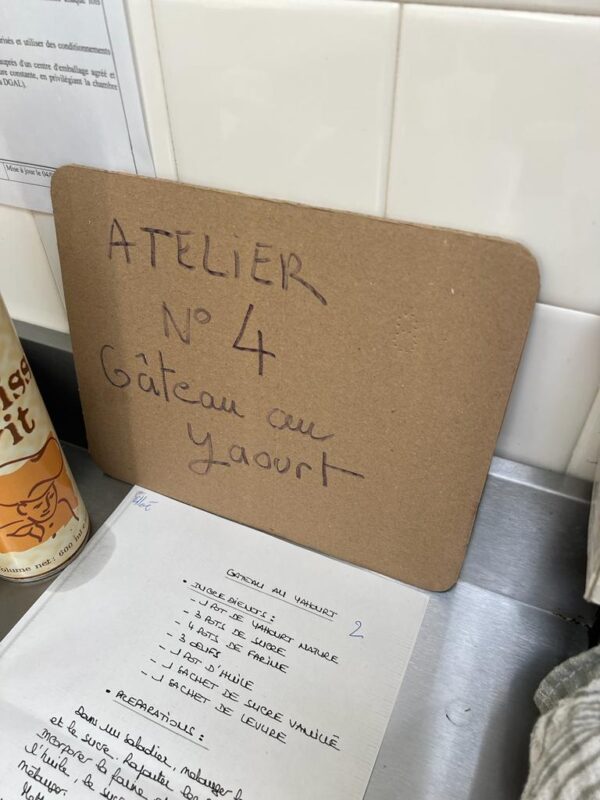 risés et utiliser des conditionnements
auprès d'un centre d'emballage agréé et
ure constante, en privilégiant la chambre
DGAL).
Mise à jour le 04/
ATELIER
N° 4
Gâteau au
yaourt
it
Volume net: 600 ml
GÂTEAU AU YAHOURT
2
• INGREDIENTS:
- 1 POT DE YAHOURT NATURE
- 3 POTS DE SUCRE
- 4 POTS DE FARINE
- 3 OEUFS
- 1 POT D'HUILE
- 1 SACHET DE SUCRE VANILLÉ
- 1 SACHET DE LEVURE
• PREPARATIONS:
Dans un saladier, mélanger le
et le sucre. Rajouter les
incorporer la farine
l'huile, le sucre
mélanger.